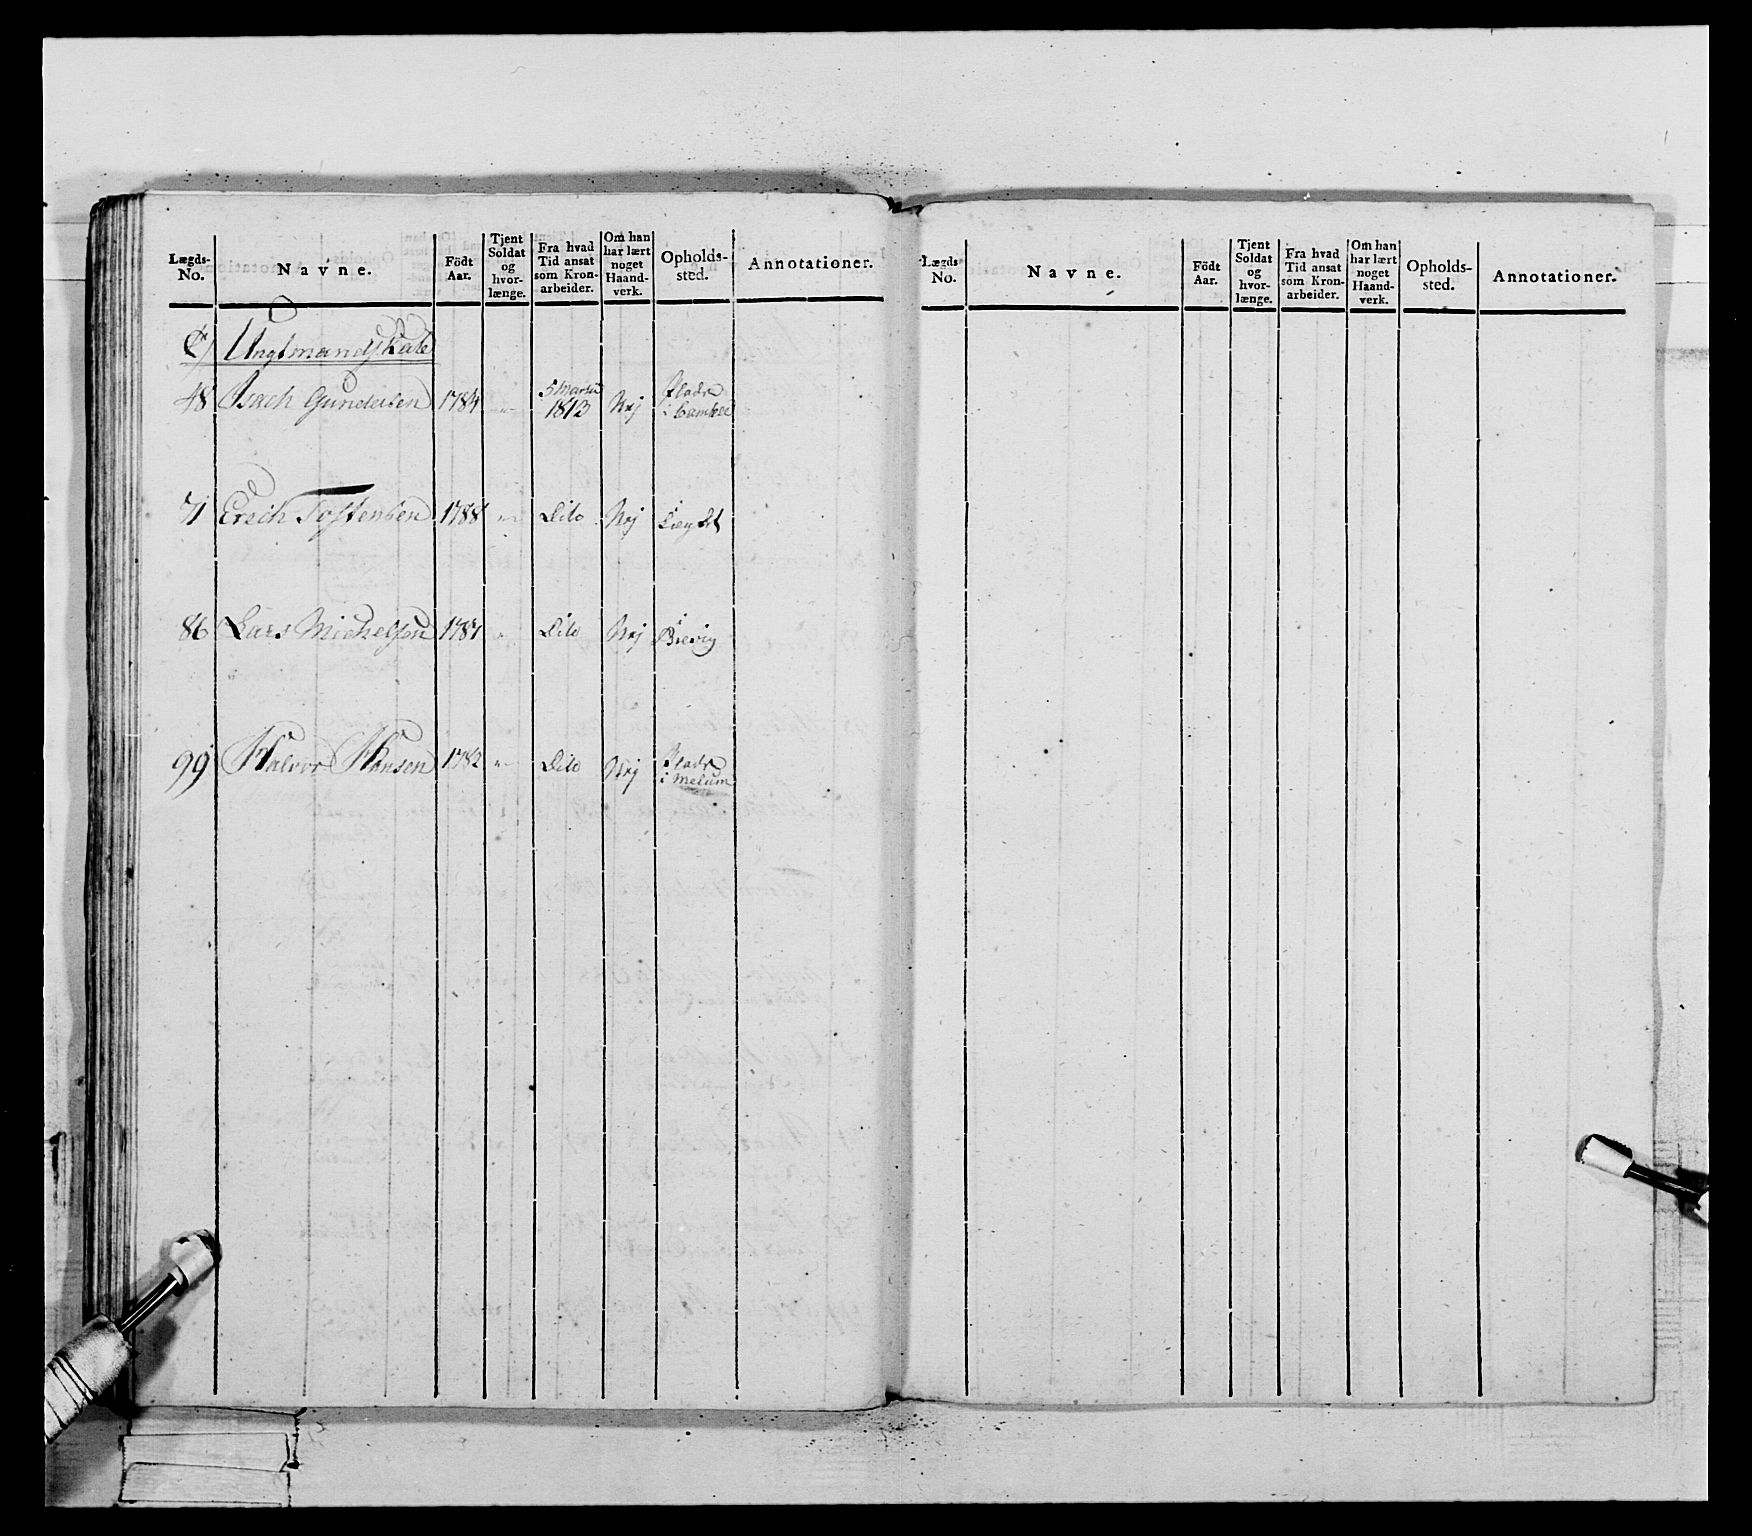 Lægds-No. Navne. Födt Aar. Tjent Soldat og hvor-længe. Fra hvad Tid ansat som Kron-arbeider. Om han har lært noget Haand-verk. Opholds-sted. Annotationer.
C) Ungtmandskab
48 Isach Gundersen 1784 " 5 Martii 1813 Nej Pladz i Bamble
71 Erich Tostensen 1788 " Dito Nej i Lægdet
86 Lars Michelsen 1787 " Dito Nej i Brevig
99 Halvor Hansen 1782 " Dito Nej Pladz i Melum
Lægds-No. Navne. Födt Aar. Tjent Soldat og hvor-længe. Fra hvad Tid ansat som Kron-arbeider. Om han har lært noget Haand-verk. Opholds-sted. Annotationer.